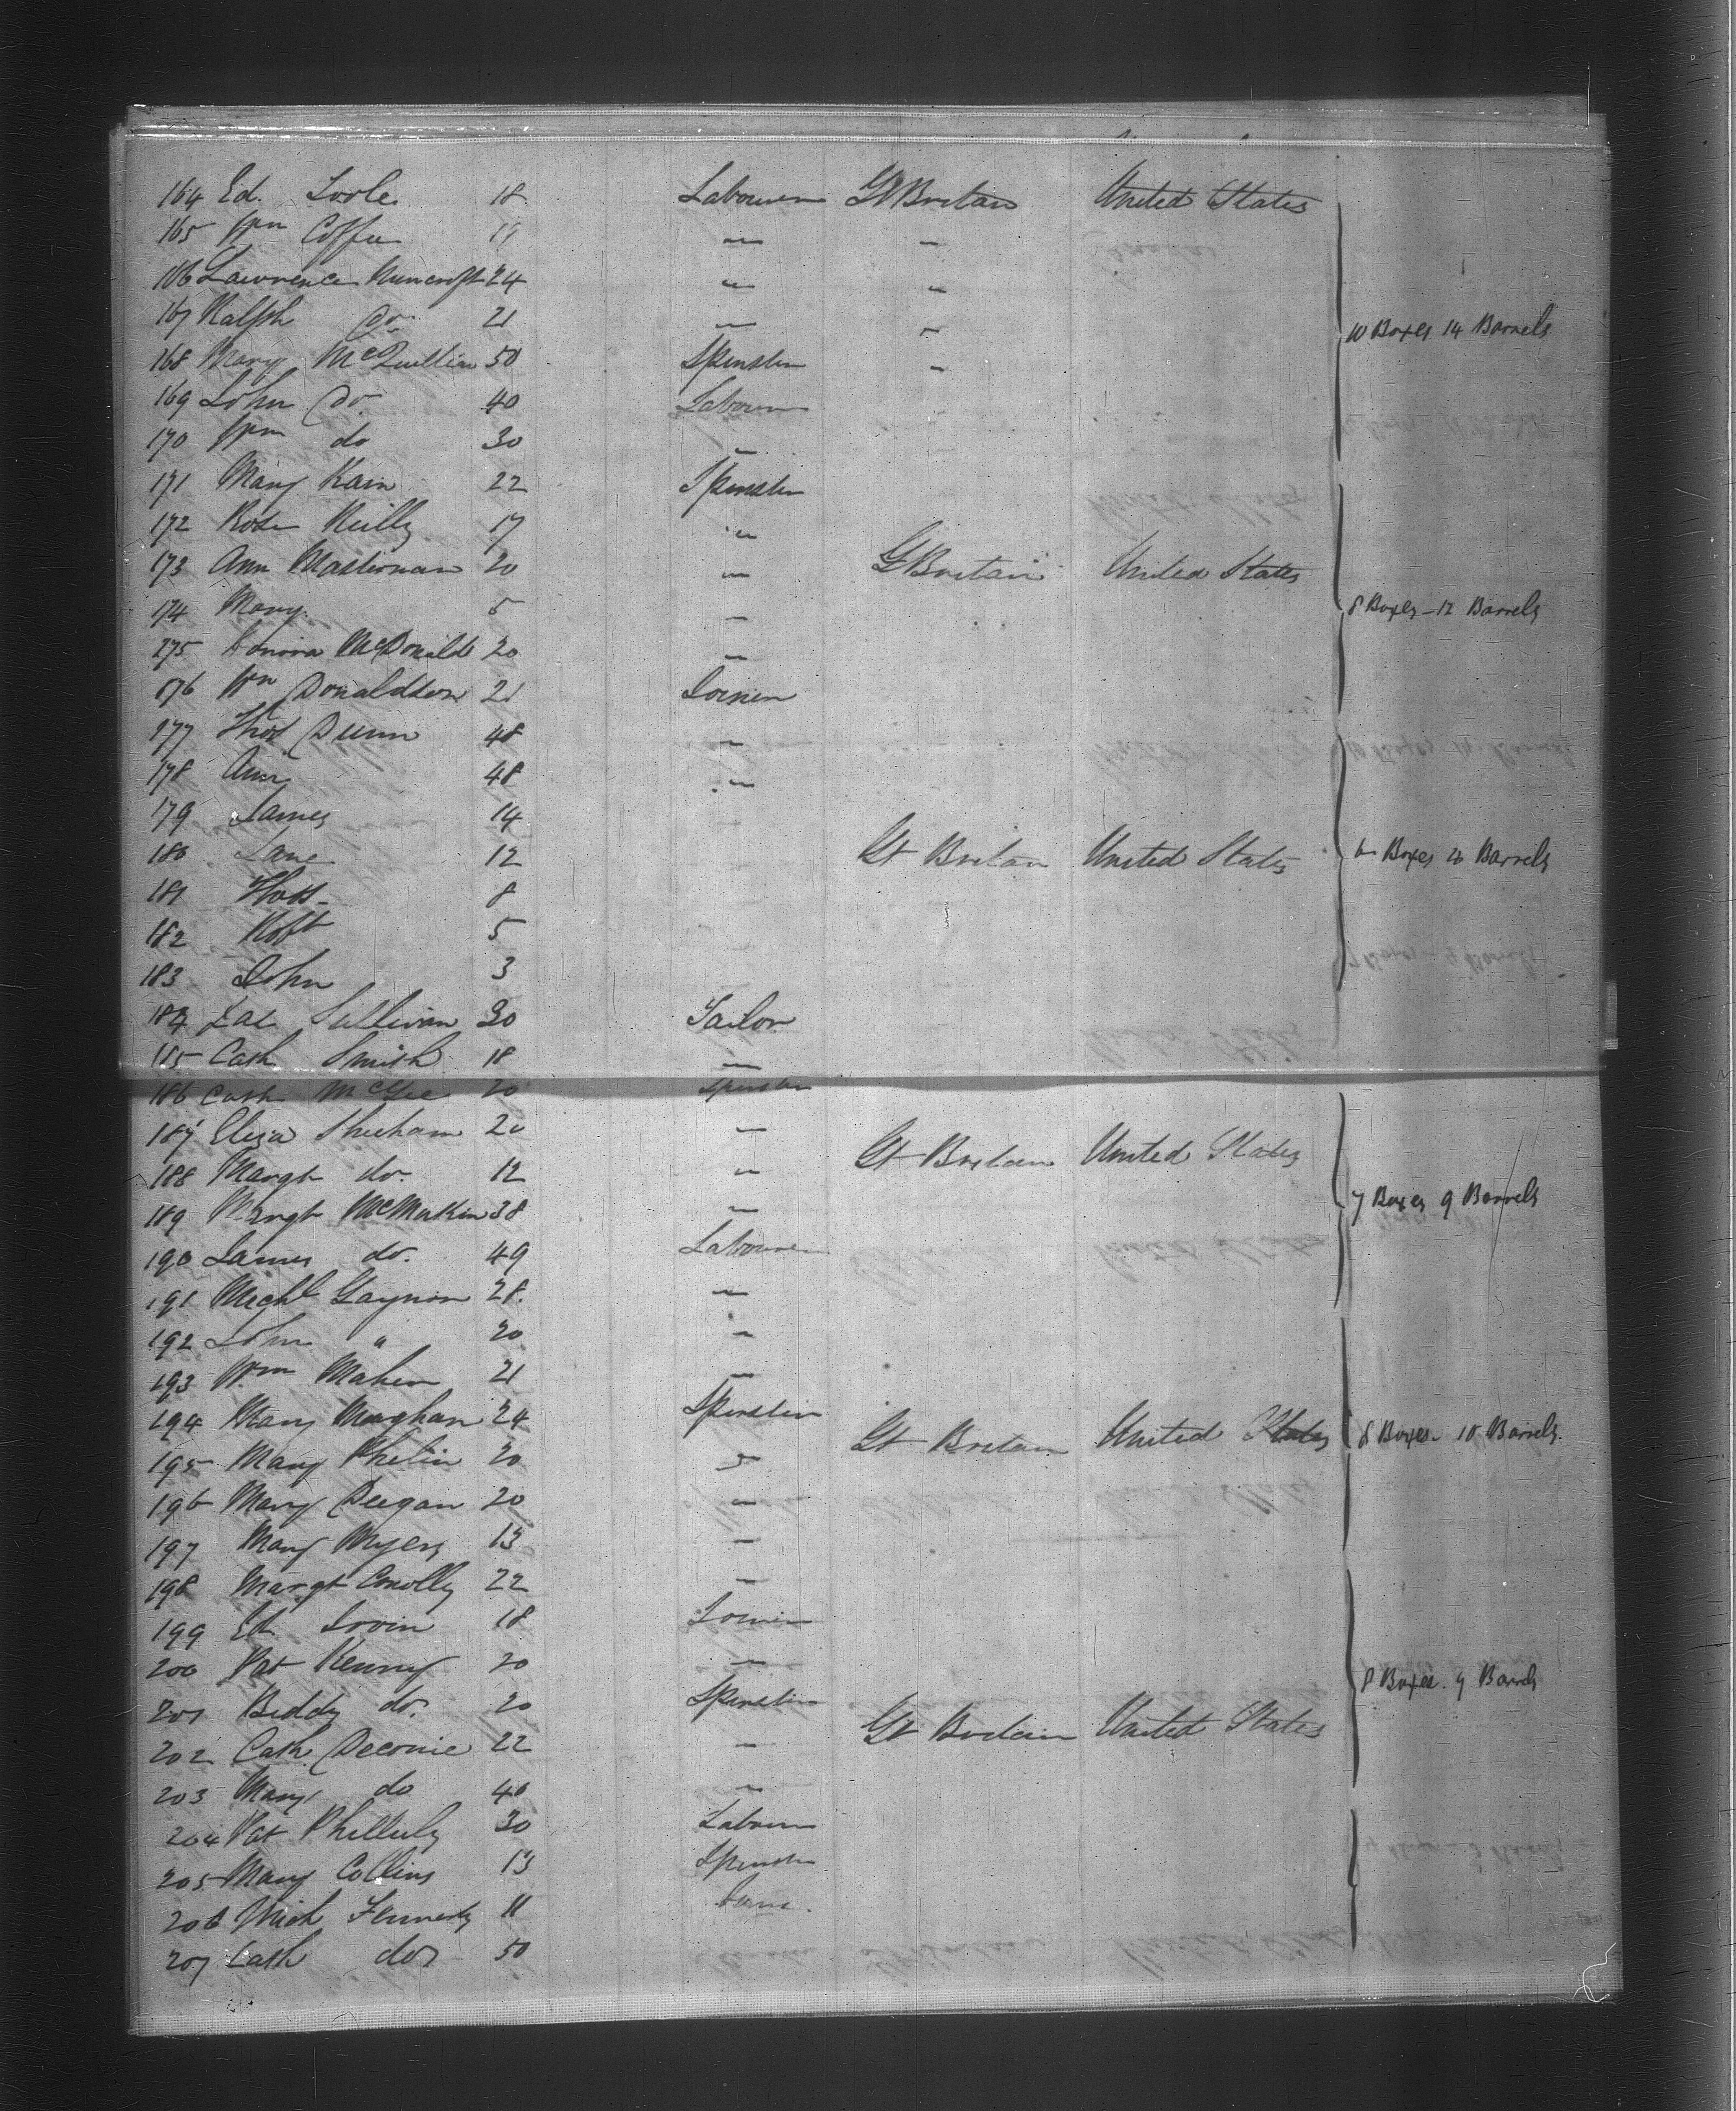 164 Ed. Toole 18 Labourer Gt Britain United States
165 Wm Coffee 19 " "
166 Lawrence 24 " "
167 Ralph Do 21 " "
168 Mary McQuillian 50 Spinster "
169 John Do. 40 Labourer
170 Wm do 30 "
10 Boxes 14 Barrels
171 Mary Kain 22 Spinster
172 Rose Reilly 17 "
173 Ann Masterman 20 " Gt Britain United States
174 Mary 5 "
8 Boxes - 12 Barrels
175 Honora McDonald 20 "
176 Wm Donaldson 21
177 Thos Dunn 48 "
178 Ann 48 "
179 James 14
180 Jane 12 Gt Britain United States
6 Boxes 20 Barrels
181 Thos 8
182 Robt 5
183 John 3
184 Sullivan 30 Tailor
185 Cath Smith 18 "
186 Cath McGee 20 Spinster
187 Eliza Sheehan 20 " Gt Britain United States
188 Margt do. 12 "
189 Margt McMakin 38 "
7 Boxes 9 Barrels
190 James do. 49 Labourer
191 Michl Gaynon 28. "
192 John " 20 "
193 Wm Maher 21 "
194 Mary Meaghan 24 Spinster Gt Britain United States
8 Boxes - 10 Barrels.
195 Mary Phelin 20 "
196 Mary Deegan 20 "
197 Mary Myers 13 "
198 Margt Conolly 22 "
199 Ed. 18
200 Pat Kenny 20 "
8 Boxes. 9 Barrels
201 Biddy do. 20 Spinster Gt Britain United States
202 Cath 22 "
203 Mary do 40 "
204 Pat 30 Labourer
205 Mary Collins 13 Spinster
206 Mich 11
207 Cath do 50